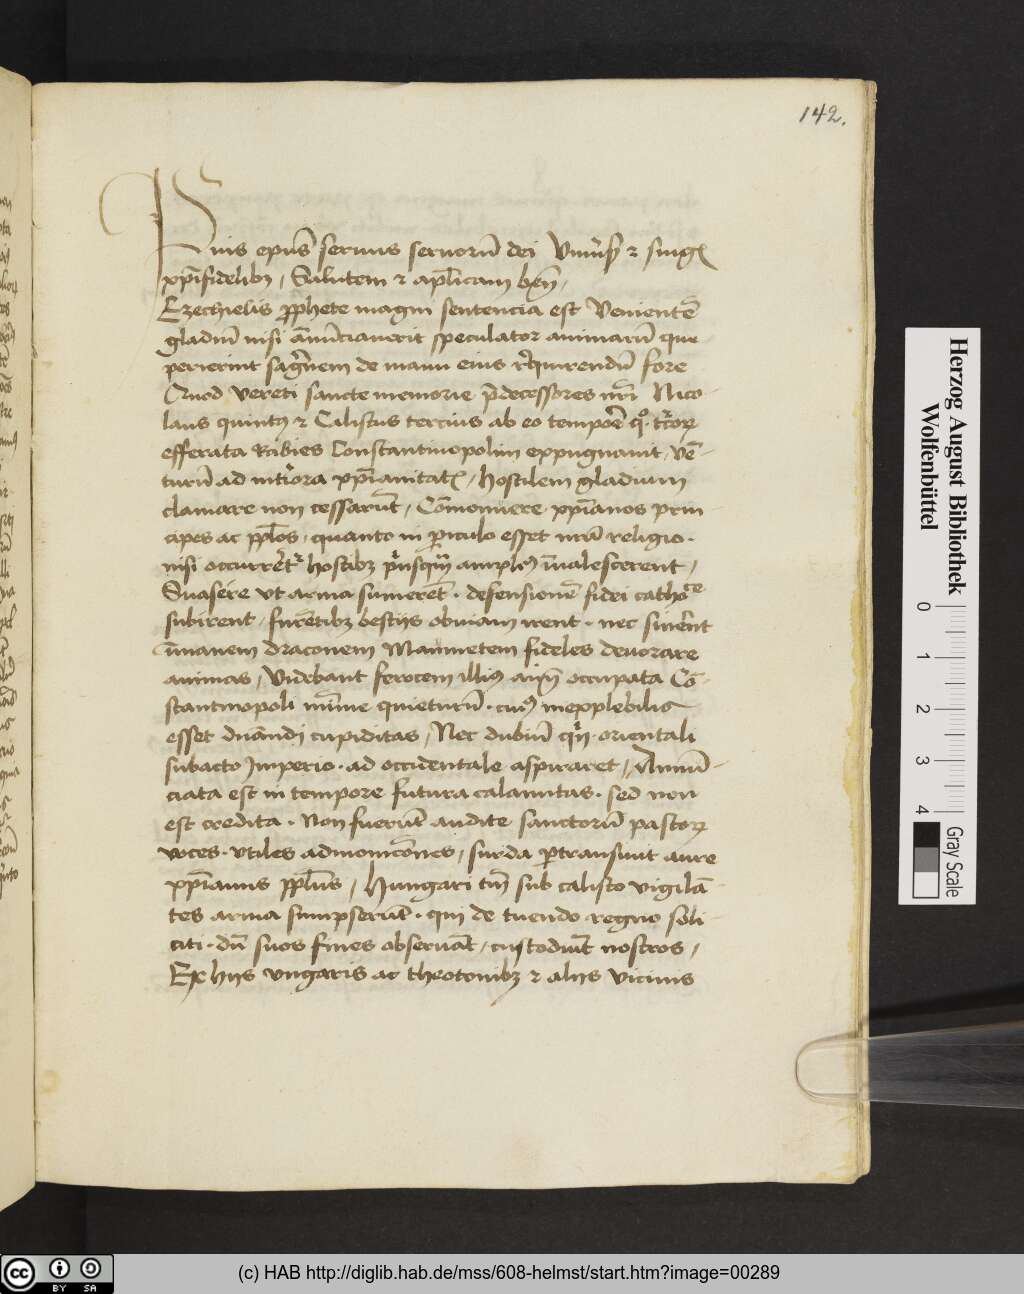 142.
Pius ep̄us seruus seruorū dei Vniu̾sꝭ ⁊ singꝭ
xp̄ifidelibꝫ / Salutem ⁊ ap̄licam bn̄ /
Ezechielis ꝓphete magni sentencia est Venientē
gladiū nisi an̄ūciauerit speculator animarū que
perierint sāgn̄em de manu eius req̾irendū fore
Quod Veriti sancte memorie p̄decessores nr̄i Nico-
laus quintꝰ ⁊ Calistus tercius ab eo tempoē qͦ t̾coꝝ
efferata Rabies Constantinopolim expugnauit / Vē-
turū ad int̾iora xp̄ianitatꝭ / hostilem gladium
clamare non cessarūt / Cōmonuere xp̄ianos prin-
cipes ac pp̄los · quanto in ꝑiculo esset nr̄a religio ·
nisi occurrēt̾ hostibꝫ p̾usqꝫ ampliꝰ īualescerent /
Suasére vt arma sumerēt · defensionē fidei cathoᶜᵉ
subirent / furētibꝫ bestijs obuiam irent · nec sinēnt
īmanem draconem Maumetem fideles deuorare
animas / Videbant ferocem illiꝰ aīm̄ occupata Cō-
stantinopoli mīme quieturū · cuiꝰ inexplebilis
esset dn̄andi cupiditas / Nec dubiū qn̄ orientali
subacto Jmperio · ad occidentale aspiraret // Annū-
ciata est in tempore futura calamitas · sed non
est credita · Non fuerūt audite sanctorū pastoꝝ
voces · vtiles admonicōnes / surda ꝑtransiuit aure
xp̄ianus pp̄lus / Hungari tn̄ sub calisto vigilā-
tes arma sumpserūt · qui de tuendo regno soli-
citi · dū suos fines obseruāt / custodiūt nostros /
Ex hijs vngaris ac theotonibꝫ ⁊ alijs vicinis
Herzog August Bibliothek
Wolfenbüttel
0 1 2 3 4
Gray Scale
cc BY SA
(c) HAB http://diglib.hab.de/mss/608-helmst/start.htm?image=00289